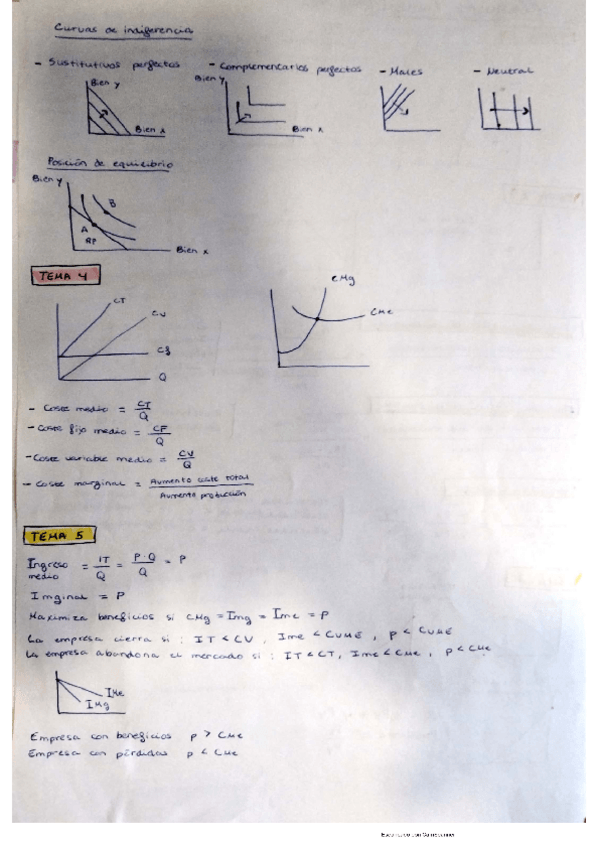 Curvas de indiferencia
- Sustitutivos perfectos - Complementarios perfectos - Males - Neutral
Bien y
Bien x
Bien y
Bien x
Posición de equilibrio
Bien y
B
A
RP
Bien x
TEMA 4
CT
CV
Cf
Q
CMg
CMe
- Coste medio = CT/Q
- Coste fijo medio = CF/Q
- Coste variable medio = CV/Q
- Coste marginal = Aumento coste total/Aumento producción
TEMA 5
Ingreso medio = IT/Q = P·Q/Q = P
Imginal = P
Maximiza beneficios si CMg = Img = Ime = P
La empresa cierra si : IT < CV, Ime < CVME, p < CVME
La empresa abandona el mercado si : IT < CT, Ime < CMe, p < CMe
IMe
IMg
Empresa con beneficios p > CMe
Empresa con pérdidas p < CMe
Escaneado con CamScanner